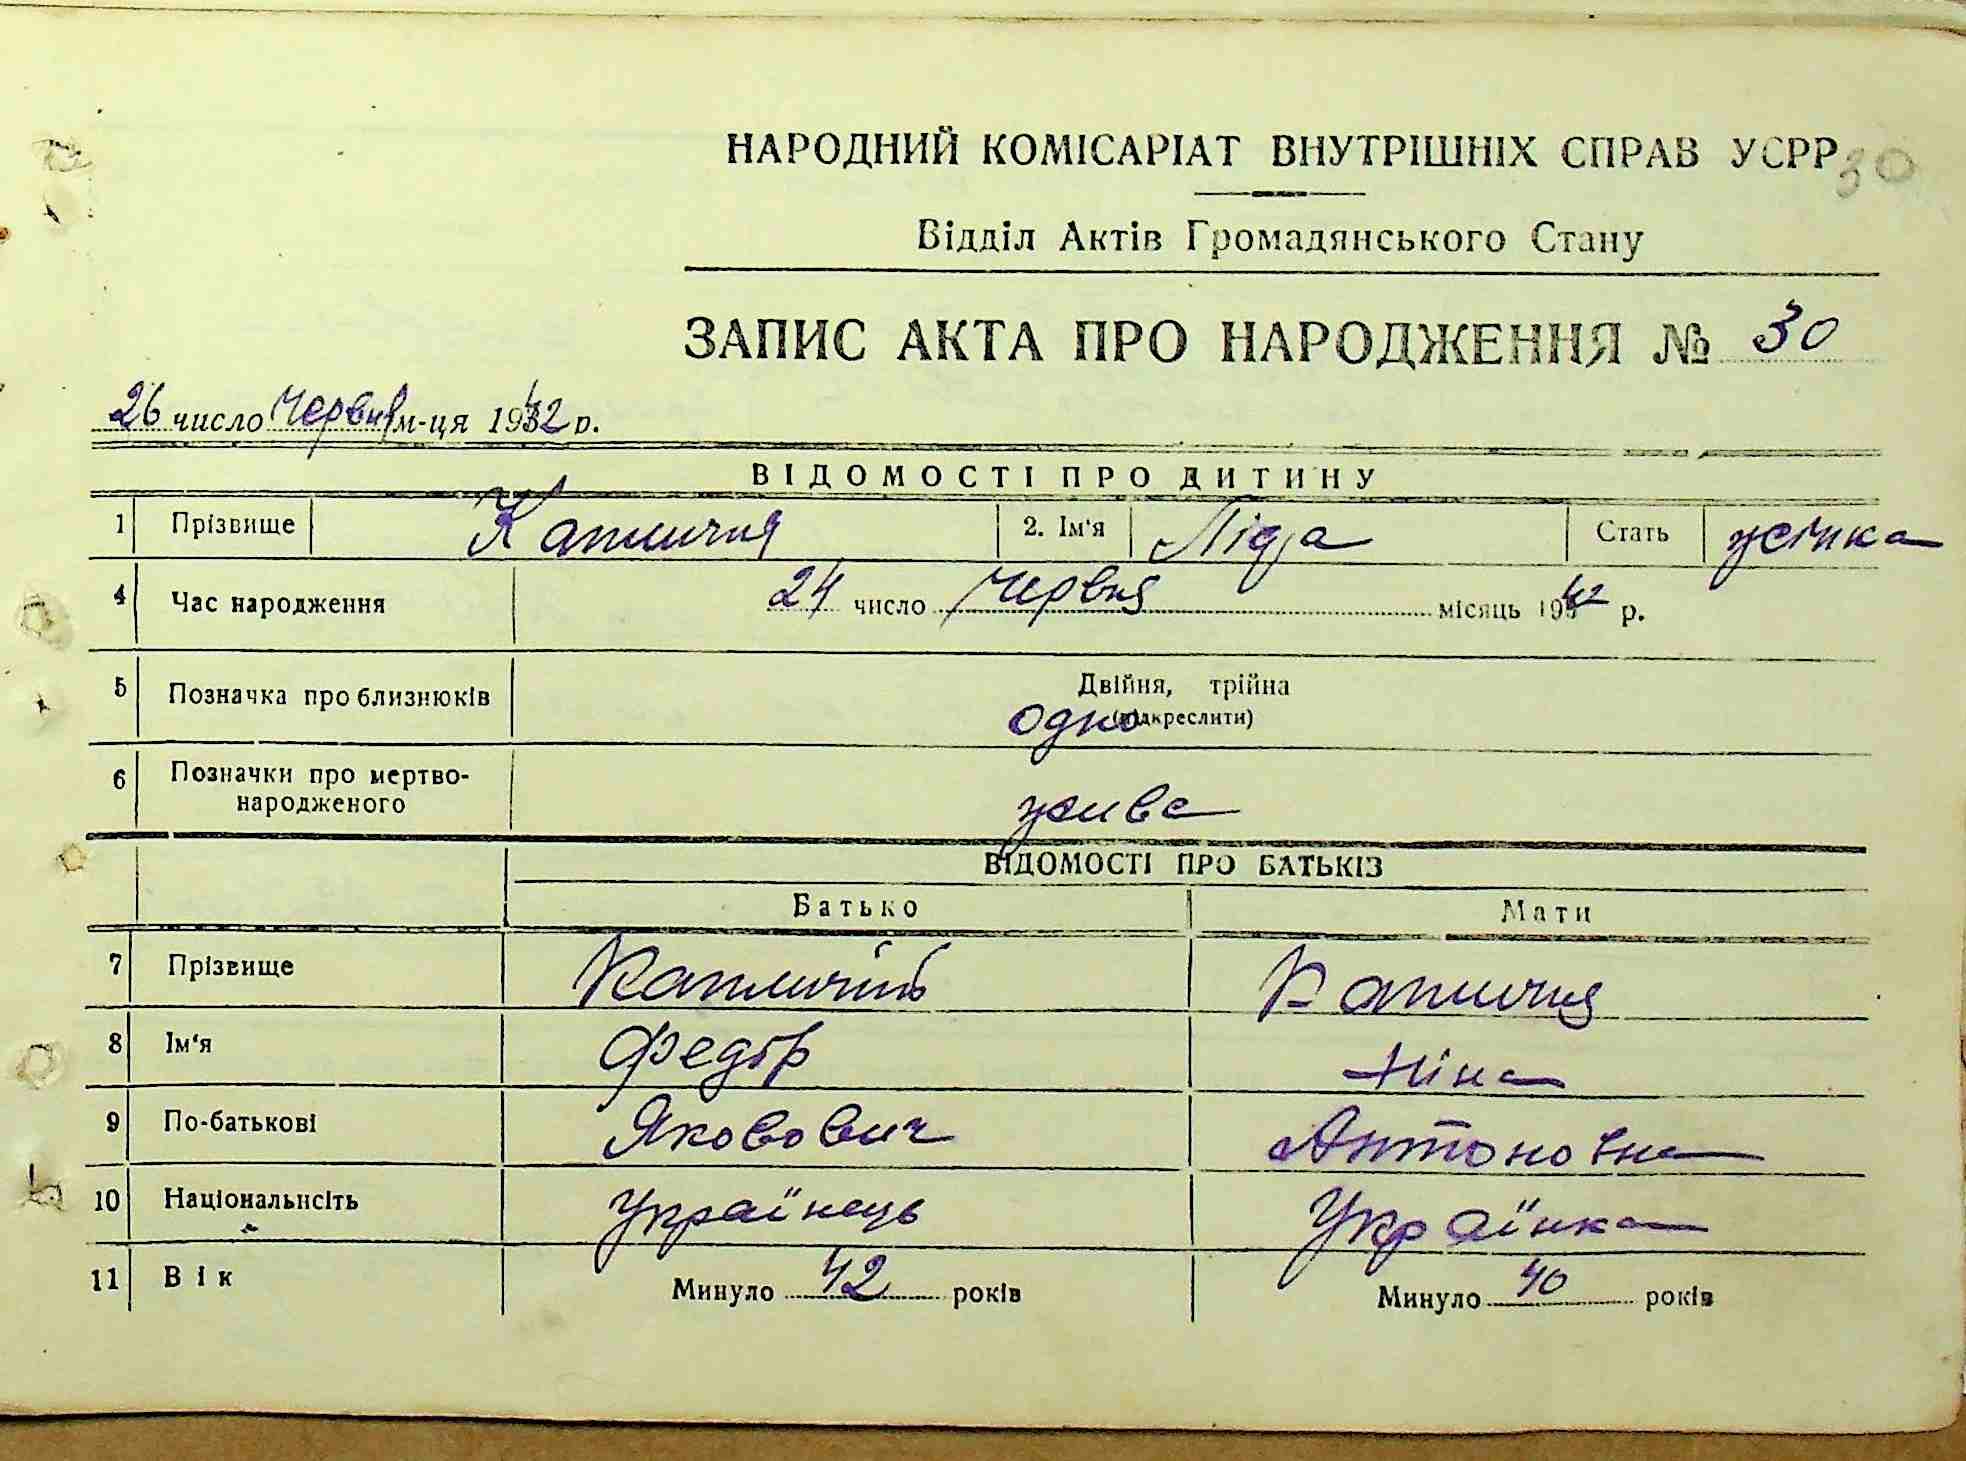 НАРОДНИЙ КОМІСАРІАТ ВНУТРІШНІХ СПРАВ УСРР 30
Відділ Актів Громадянського Стану
ЗАПИС АКТА ПРО НАРОДЖЕННЯ № 30
26 число Червня м-ця 1942 р.
ВІДОМОСТІ ПРО ДИТИНУ
1 Прізвище 2. Ім'я Ліда Стать жінка
4 Час народження 24 число Червня місяць 1942 р.
5 Позначка про близнюків Двійня, трійна
одно (підкреслити)
6 Позначки про мертво-
народженого жива
ВІДОМОСТІ ПРО БАТЬКІВ
Батько Мати
7 Прізвище
8 Ім'я Федір Ніна
9 По-батькові Якович Антоновна
10 Національнсіть Українець Українка
11 Вік Минуло 42 років Минуло 40 років